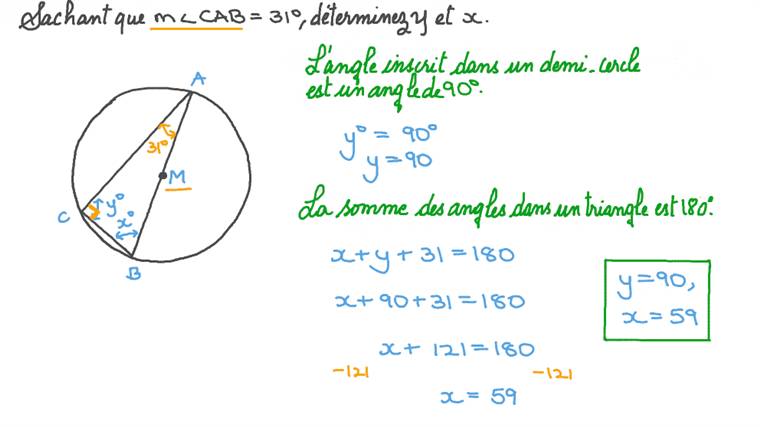 Sachant que m∠CAB = 31°, déterminez y et x.
L'angle inscrit dans un demi-cercle
est un angle de 90°.
A
31°
M
y°
C
x°
B
y° = 90°
y = 90
La somme des angles dans un triangle est 180°.
x + y + 31 = 180
x + 90 + 31 = 180
x + 121 = 180
-121 -121
x = 59
y = 90,
x = 59